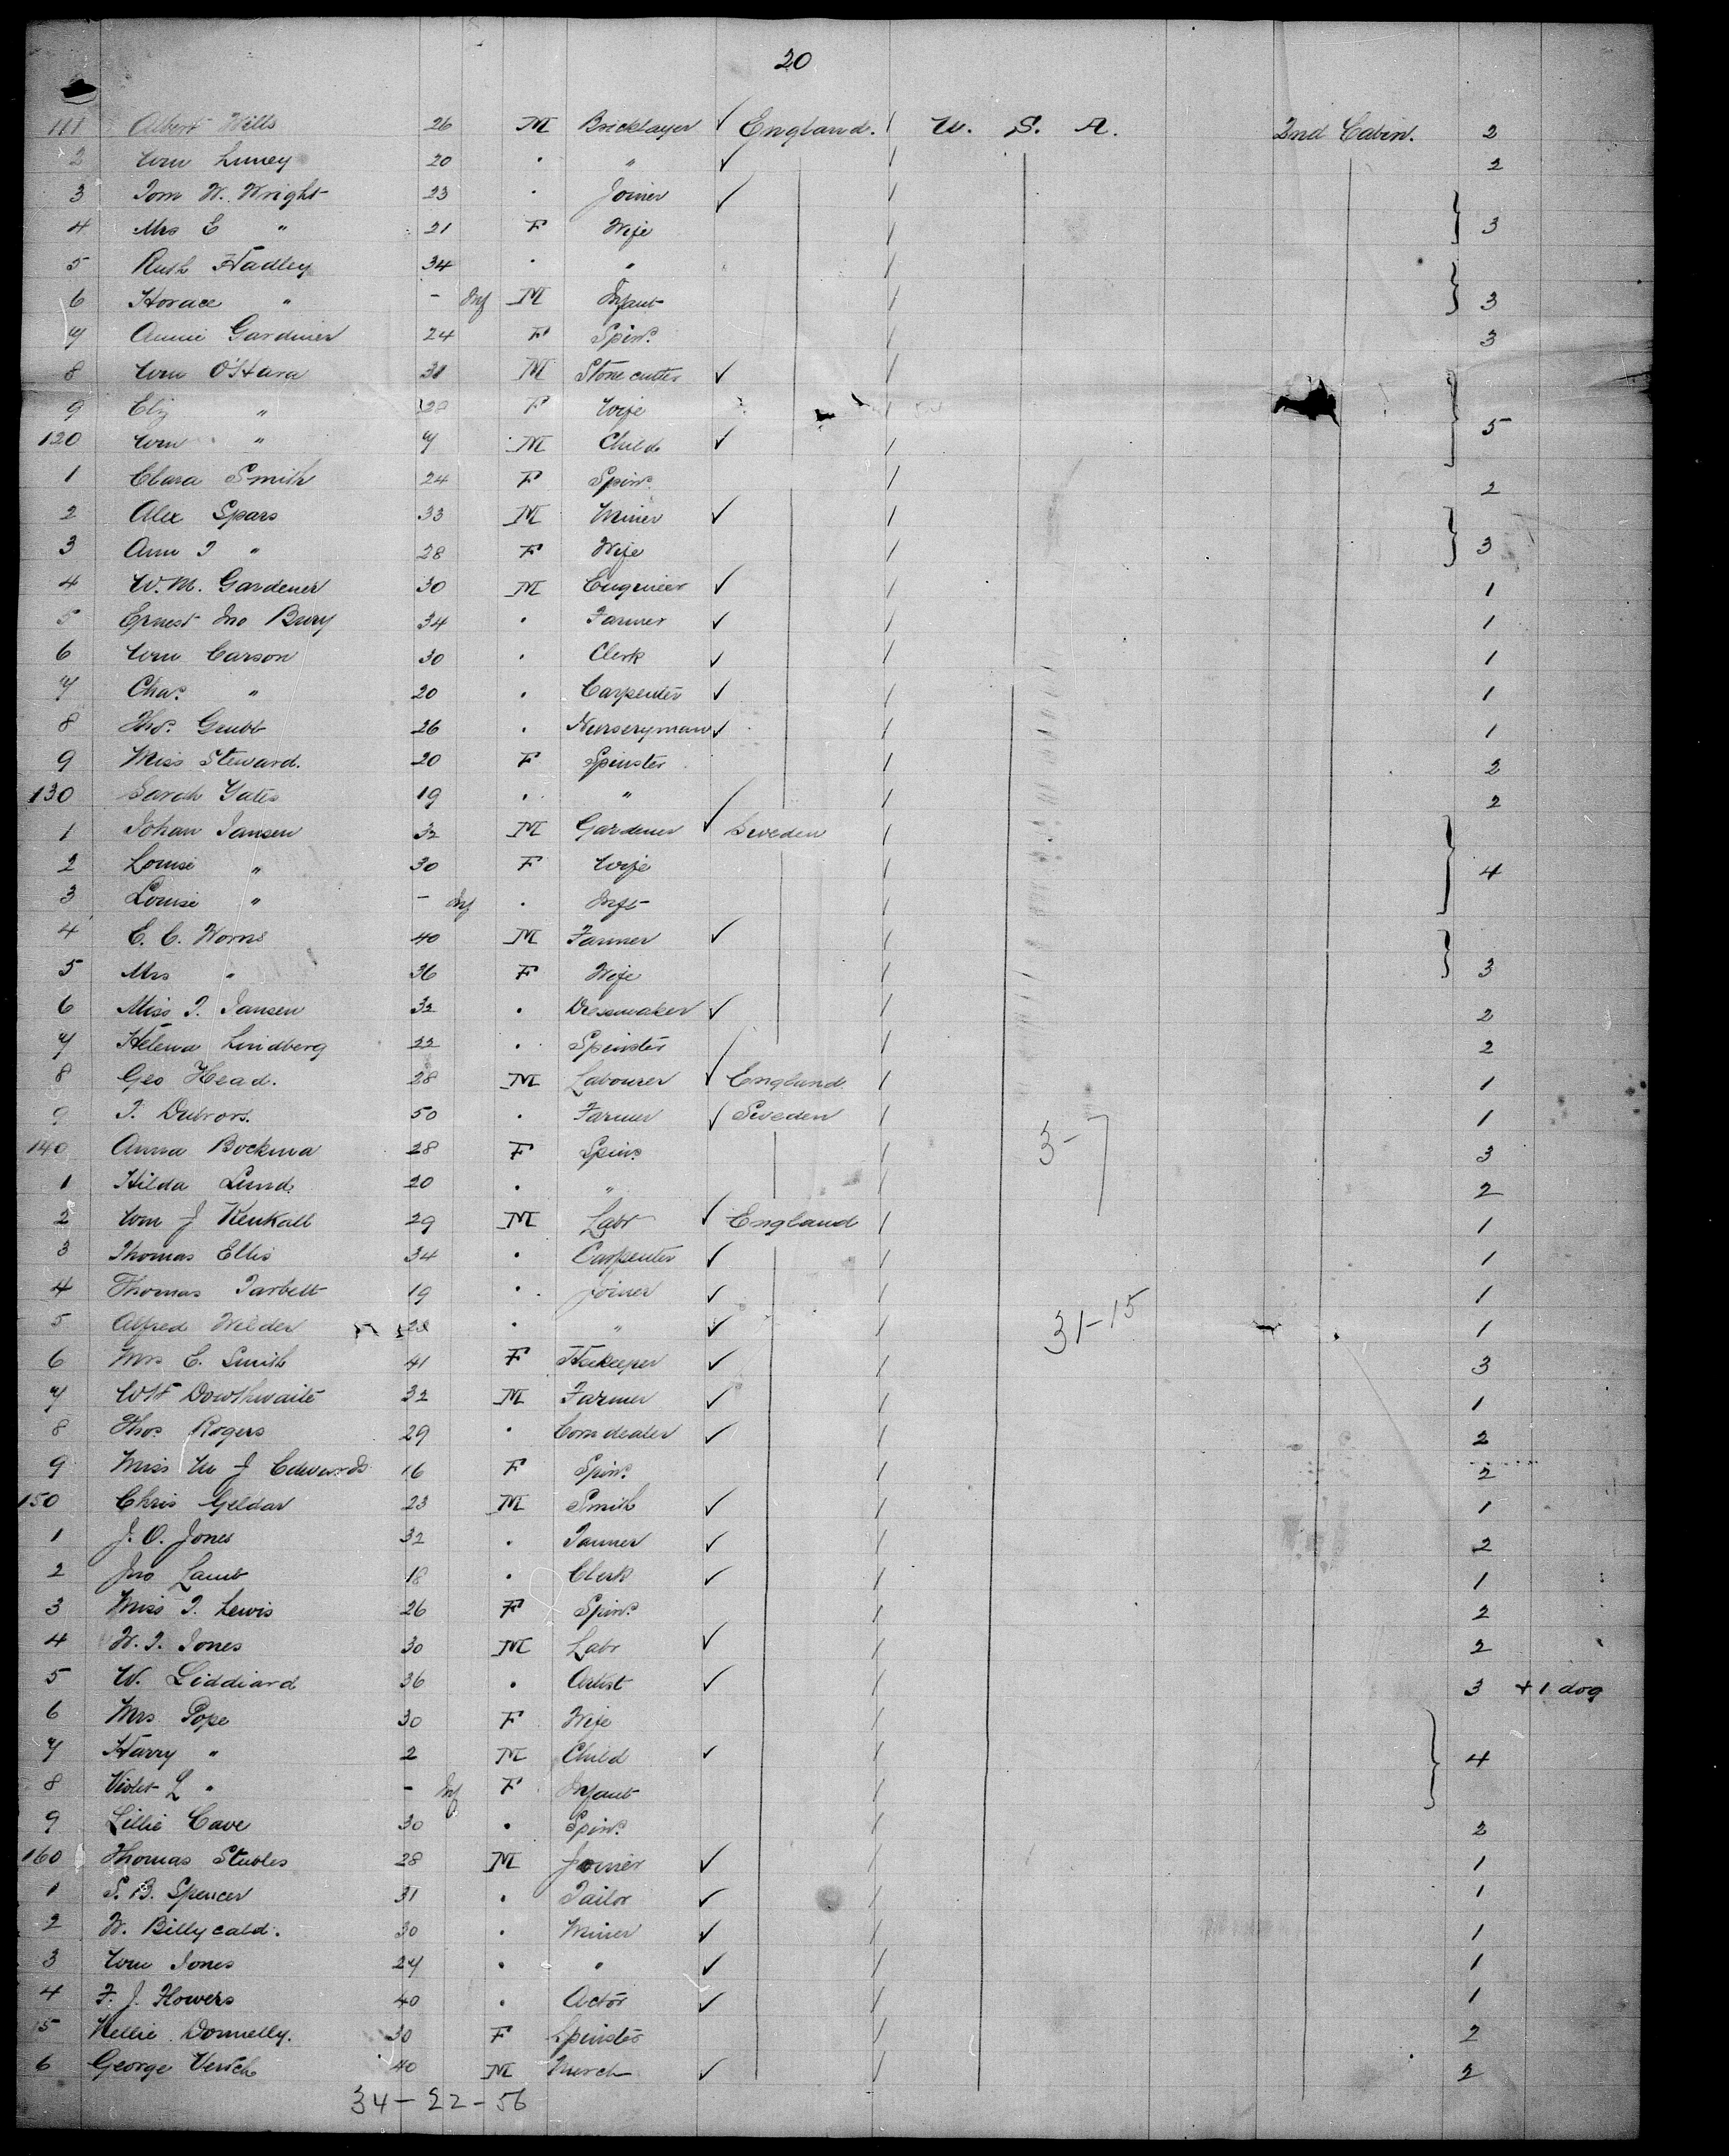 20
111 Albert Wills 26 M Bricklayer ✓ England. / U. S. A. 2nd Cabin. 2
2 Wm Luney 20 . " ✓ / 2
3 Tom W. Wright 23 . Joiner ✓ /
4 Mrs E " 21 F Wife / } 3
5 Ruth Hadley 34 . " /
6 Horace " - Inf M Infant / } 3
7 Annie Gardiner 24 F Spinr. / 3
8 Wm O'Hara 31 M Stone cutter ✓ /
9 Eliz " 28 F Wife / } 5
120 Wm " 7 M Child ✓ /
1 Clara Smith 24 F Spinr. / 2
2 Alex Spars 33 M Miner ✓ /
3 Ann J " 28 F Wife / } 3
4 W. M. Gardener 30 M Engineer ✓ / 1
5 Ernest Jno Bury 34 . Farmer ✓ / 1
6 Wm Carson 30 . Clerk ✓ / 1
7 Chas. " 20 . Carpenter ✓ / 1
8 Thos. Grubb 26 . Nurseryman ✓ / 1
9 Miss Steward. 20 F Spinster / 2
130 Sarah Yates 19 . " / 2
1 Johan Jansen 32 M Gardener ✓ Sweden /
2 Louise " 30 F Wife / } 4
3 Louise " - Inf . Inft /
4 C. C. Worns 40 M Farmer ✓ /
5 Mrs " 36 F Wife / } 3
6 Miss J. Jansen 32 . Dressmaker ✓ / 2
7 Helena Lindberg 22 . Spinster / 2
8 Geo Head. 28 M Labourer ✓ England / 1
9 J. 50 . Farmer ✓ Sweden / 1
140 Anna Bockma 28 F Spinr. / 3
3-7
1 Hilda Lund. 20 . " / 2
2 Wm J 29 M Labr ✓ England / 1
3 Thomas Ellis 34 . Carpenter ✓ / 1
4 Thomas Tarbett 19 . Joiner ✓ / 1
31-15
5 Alfred Wilder 22 . " ✓ / 1
6 Mrs C. Smith 41 F Hsekeeper ✓ / 3
7 WH Dowthwaite 32 M Farmer ✓ / 1
8 Thos Rogers 29 . Corn dealer ✓ / 2
9 Miss M J Edwards 16 F Spinr. / 2
150 Chris Geldar 23 M Smith ✓ / 1
1 J. O. Jones 32 . Tanner ✓ / 2
2 Jno Lamb 18 . Clerk ✓ / 1
3 Miss J. Lewis 26 F Spinr. / 2
4 W. J. Jones 30 M Labr ✓ / 2
5 W. Liddiard 36 . Artist ✓ / 3 + 1 dog
6 Mrs Pope 30 F Wife /
7 Harry " 2 M Child ✓ / } 4
8 Violet L " - Inf F Infant /
9 Lillie Cave 30 . Spinr. / 2
160 Thomas Stubles 28 M Joiner ✓ / 1
1 S. B. Spencer 31 . Tailor ✓ / 1
2 W. Billycald. 30 . Miner ✓ / 1
3 Wm Jones 27 . " ✓ / 1
4 F. J. Flowers 40 . Actor ✓ / 1
5 Nellie Donnelly. 30 F Spinster / 2
6 George 40 M Merch ✓ / 2
34-22-56